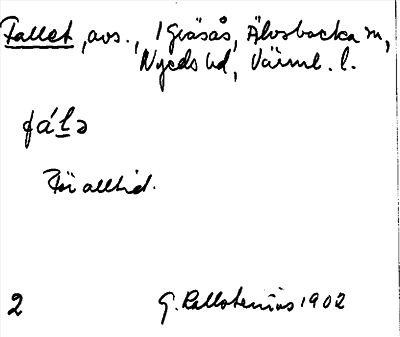 Fallet, avs., 1 Gräsås, Älvsbacka sn,
Nyeds hd, Värml. l.
fá´lə
För alltid.
2 G. Kallstenius 1902